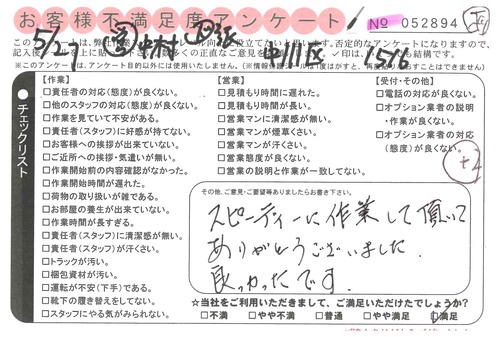 お客様不満足度アンケート
No 052894
5/27 中村 中川区 1576
※このアンケートは、アンケート目的以外には使用いたしません。
チェックリスト
【作業】
□責任者の対応(態度)が良くない。
□他のスタッフの対応(態度)が良くない。
□作業を見ていて不安がある。
□責任者(スタッフ)に好感が持てない。
□お客様への挨拶が出来ていない。
□ご近所への挨拶・気遣いが無い。
□作業開始前の内容確認がなかった。
□作業開始時間が遅れた。
□荷物の取り扱いが雑である。
□お部屋の養生が出来ていない。
□作業時間が長すぎる。
□責任者(スタッフ)に清潔感が無い。
□責任者(スタッフ)が汗くさい。
□トラックが汚い。
□梱包資材が汚い。
□運転が不安(下手)である。
□靴下の履き替えをしてない。
□スタッフにやる気がみられない。
【営業】
□見積もり時間に遅れた。
□見積もり時間が長い。
□営業マンに清潔感が無い。
□営業マンが煙草くさい。
□営業マンが汗くさい。
□営業態度が良くない。
□営業の説明と作業が一致してない。
【受付・その他】
□電話の対応が良くない。
□オプション業者の説明
・作業が良くない。
□オプション業者の対応
(態度)が良くない。
+2
その他、ご意見・ご要望等ありましたらお書き下さい。
スピーディーに作業して頂いて
ありがとうございました。
良かったです。
☆当社をご利用いただきまして、ご満足いただけたでしょうか?
□不満 □やや不満 □普通 □やや満足 □満足